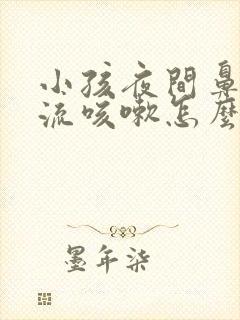 小孩夜間鼻
流咳嗽怎麼
墨年柒